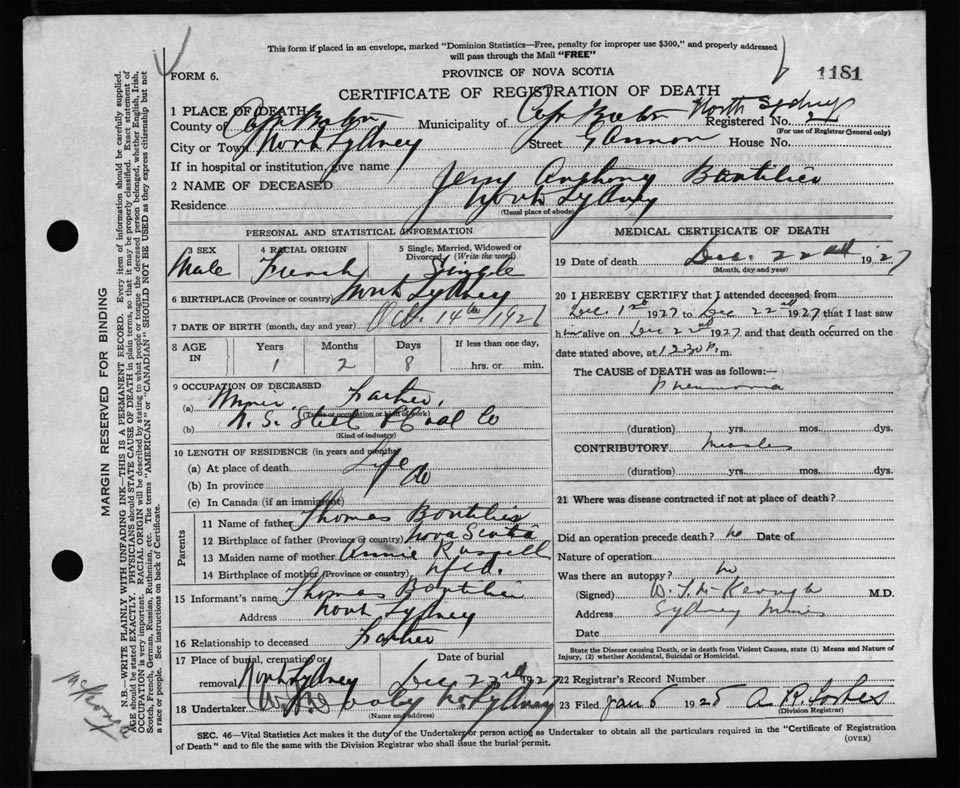 This form if placed in an envelope, marked "Dominion Statistics—Free, penalty for improper use $300," and properly addressed
will pass through the Mail "FREE"
FORM 6.
PROVINCE OF NOVA SCOTIA
1181
CERTIFICATE OF REGISTRATION OF DEATH
1 PLACE OF DEATH
County of Cape Breton Municipality of Cape Breton North Sydney Registered No.
(For use of Registrar General only)
City or Town North Sydney Street Gannon House No.
If in hospital or institution, give name
2 NAME OF DECEASED Jerry Anthony Boutilier
Residence North Sydney
(Usual place of abode)
PERSONAL AND STATISTICAL INFORMATION
3 SEX 4 RACIAL ORIGIN 5 Single, Married, Widowed or Divorced (Write the word)
Male French Single
6 BIRTHPLACE (Province or country) North Sydney
7 DATE OF BIRTH (month, day and year) Oct. 14th 1926
8 AGE IN Years Months Days If less than one day,
1 2 8 hrs. or min.
9 OCCUPATION OF DECEASED
(a) Miner Father,
(Trade, occupation or kind of work)
(b) N.S. Steel & Coal Co
(Kind of industry)
10 LENGTH OF RESIDENCE (in years and months)
(a) At place of death Life
(b) In province do
(c) In Canada (if an immigrant)
Parents
11 Name of father Thomas Boutilier
12 Birthplace of father (Province or country) Nova Scotia
13 Maiden name of mother Annie Russell
14 Birthplace of mother (Province or country) Nfld.
15 Informant's name Thomas Boutilier
Address North Sydney
16 Relationship to deceased Father
17 Place of burial, cremation or removal Date of burial
North Sydney Dec 23rd 1927
18 Undertaker N. Sydney
(Name and address)
MEDICAL CERTIFICATE OF DEATH
19 Date of death Dec. 22nd 1927
(Month, day and year)
20 I HEREBY CERTIFY that I attended deceased from
Dec. 1st 1927 to Dec 22nd 1927 that I last saw
him alive on Dec 22nd 1927 and that death occurred on the
date stated above, at 12:30 P. m.
The CAUSE of DEATH was as follows:—
Pneumonia
(duration) yrs. mos. dys.
CONTRIBUTORY Measles
(duration) yrs. mos. dys.
21 Where was disease contracted if not at place of death?
Did an operation precede death? No Date of
Nature of operation
Was there an autopsy? No
(Signed) D. J. McKeough M.D.
Address Sydney Mines
Date
State the Disease causing Death, or in death from Violent Causes, state (1) Means and Nature of
Injury, (2) whether Accidental, Suicidal or Homicidal.
22 Registrar's Record Number
23 Filed Jan 5 1928 A. R. Forbes
(Division Registrar)
SEC. 46—Vital Statistics Act makes it the duty of the Undertaker or person acting as Undertaker to obtain all the particulars required in the "Certificate of Registration
of Death" and to file the same with the Division Registrar who shall issue the burial permit.
(OVER)
MARGIN RESERVED FOR BINDING
N.B.—WRITE PLAINLY WITH UNFADING INK—THIS IS A PERMANENT RECORD. Every item of information should be carefully supplied.
AGE should be stated EXACTLY. PHYSICIANS should STATE CAUSE OF DEATH in plain terms, so that it may be properly classified. Exact statement of
OCCUPATION is very important. RACIAL ORIGIN will be described by stating to what people or tongue the deceased person belonged, whether English, Irish,
Scotch, French, German, Russian, Ruthenian, etc. The terms "AMERICAN" or "CANADIAN" SHOULD NOT BE USED as they express citizenship but not
a race or people. See instructions on back of Certificate.